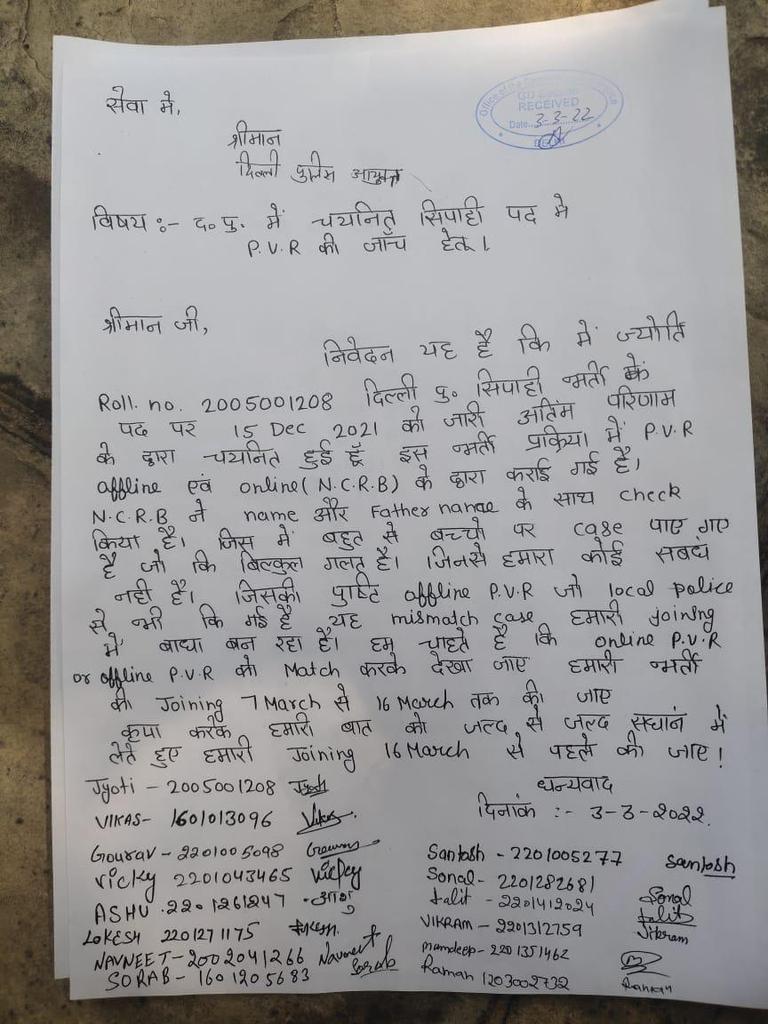 सेवा मे,
Office of the
RECEIVED
Date. 3-3-22
श्रीमान
दिल्ली पुलिस आयुक्त
विषय :- द. पु. में चयनित सिपाही पद मे
P.V.R की जाँच हेतू।
श्रीमान जी,
निवेदन यह है कि में ज्योति
Roll. no. 2005001208 दिल्ली पु. सिपाही भर्ती के
पद पर 15 Dec 2021 को जारी अतिंम परिणाम
के द्वारा चयनित हुई हूँ इस भर्ती प्रकिया में P.V.R
offline एवं online (N.C.R.B) के द्वारा कराई गई है।
N.C.R.B ने name और Father name के साथ check
किया है। जिस में बहुत से बच्चो पर case पाए गए
है जो कि बिल्कुल गलत है। जिनसे हमारा कोई सबधं
नही है। जिसकी पुष्टि offline P.V.R जो local police
से भी कि गई है यह mismatch case हमारी joining
में बाधा बन रहा है। हम चाहते है कि online P.V.R
or offline P.V.R को Match करके देखा जाए हमारी भर्ती
की Joining 7 March से 16 March तक की जाए
कृपा करके हमारी बात को जल्द से जल्द सधांन में
लेते हुए हमारी Joining 16 March से पहले की जाए!
धन्यवाद
दिनांक :- 3-3-2022.
Jyoti - 2005001208 Jyoti
VIKAS - 1601013096 Vikas
Gourav - 2201005098 Gourav
Vicky 2201043465 Vicky
ASHU - 2201261247 आशु
LOKESH 2201271175 Lokesh
NAVNEET - 2002041266 Navneet
SORAB - 1601205683 Sorab
Santosh - 2201005277 Santosh
Sonal - 2201282681 Sonal
Lalit - 2201412024 Lalit
VIKRAM - 2201312759 Vikram
mamdeep - 2201351462
Raman 1203002732 Raman